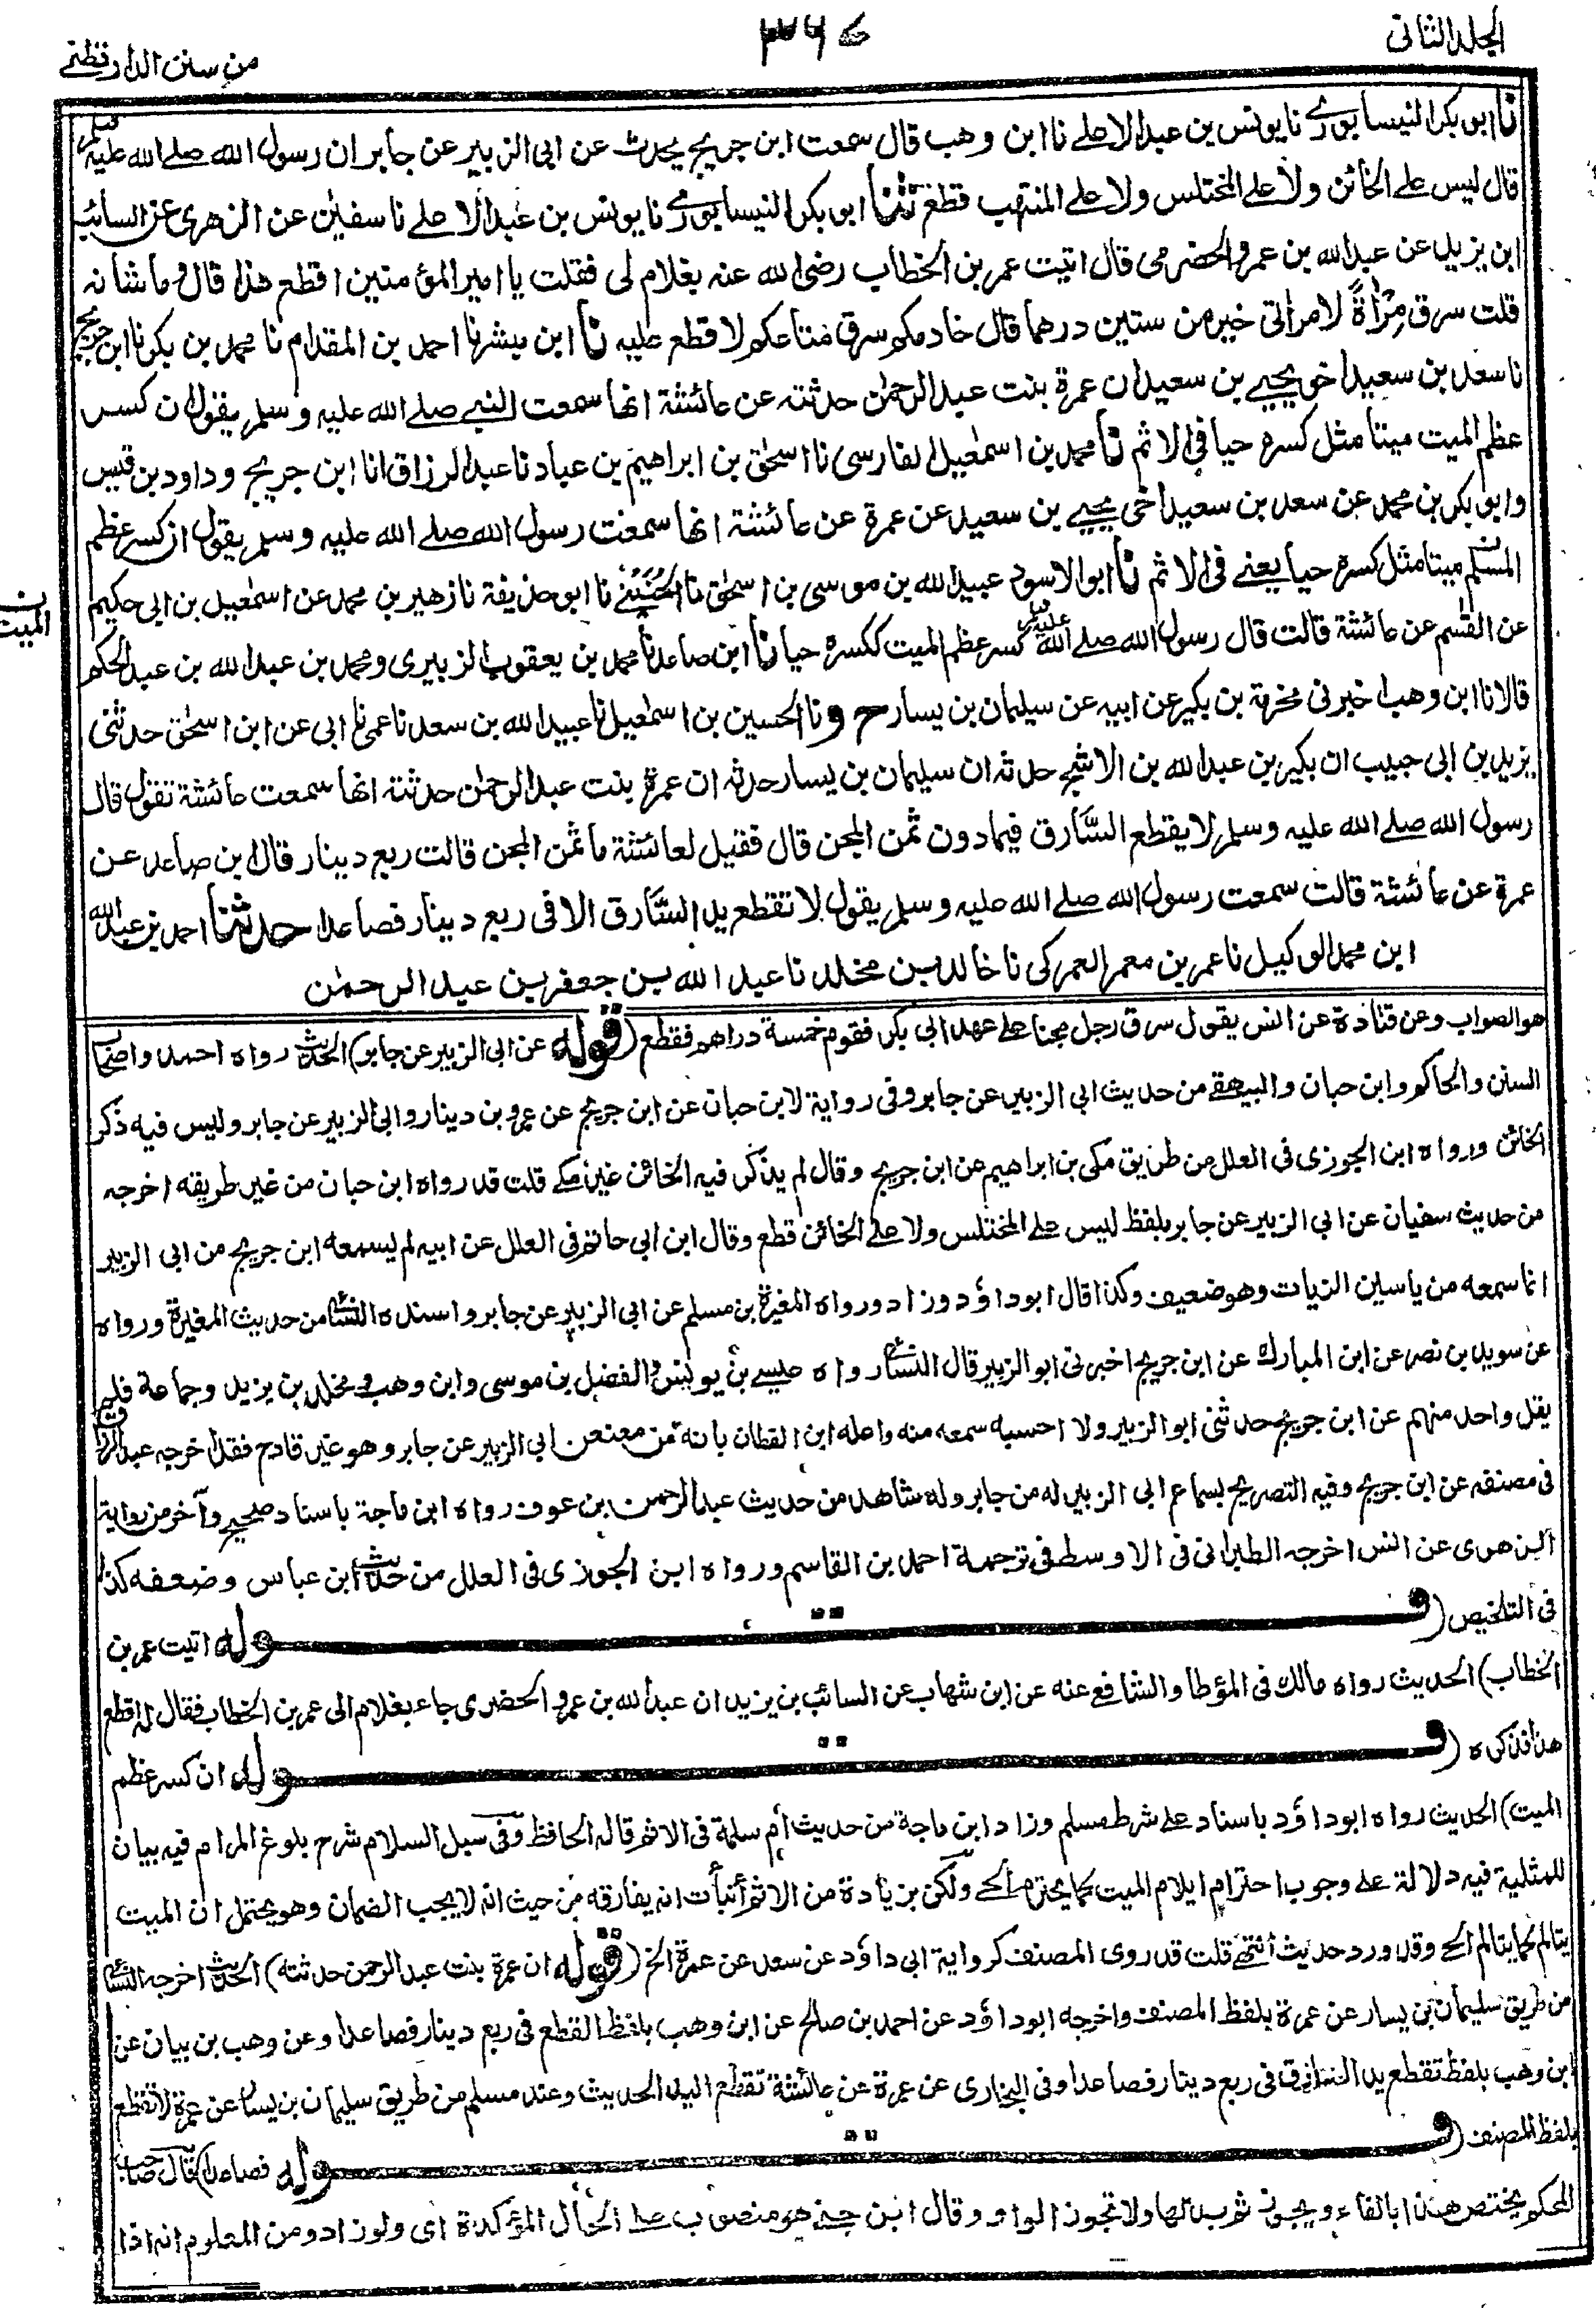 الجلد الثانى
٣٦٧
من سنن الدارقطنے
نا ابو بكر النيسابورے نا يونس بن عبد الاعلے نا ابن وهب قال سمعت ابن جريج يحدث عن ابى الزبير عن جابر ان رسول الله صلے الله عليه وسلم
قال ليس علے الخائن ولا علے المختلس ولا علے المنتهب قطع ثنا ابو بكر النيسابورے نا يونس بن عبد الاعلے نا سفيان عن الزهرى عن السائب
ابن يزيد عن عبد الله بن عمرو الحضرمى قال اتيت عمر بن الخطاب رضى الله عنه بغلام لى فقلت يا امير المؤمنين اقطع هذا قال وما شانه
قلت سرق مِرْاٰةً لامراتى خير من ستين درهما قال خادمكم سرق متاعكم لا قطع عليه نا ابن مبشر نا احمد بن المقدام نا محمد بن بكر نا ابن جريج
نا سعد بن سعيد اخى يحيے بن سعيد ان عمرة بنت عبد الرحمٰن حدثته عن عائشة انها سمعت النبے صلے الله عليه وسلم يقول ان كسر
عظم الميت ميتا مثل كسره حيا فى الاثم نا محمد بن اسمٰعيل الفارسى نا اسحٰق بن ابراهيم بن عباد نا عبد الرزاق انا ابن جريج وداود بن قيس
وابو بكر بن محمد عن سعد بن سعيد اخى يحيے بن سعيد عن عمرة عن عائشة انها سمعت رسول الله صلے الله عليه وسلم يقول ان كسر عظم
المسلم ميتا مثل كسره حيا يعنے فى الاثم نا ابو الاسود عبيد الله بن موسى بن اسحٰق نا الحُنَيْنے نا ابو حذيفة نا زهير بن محمد عن اسمٰعيل بن ابى حكيم
ن الميت
عن القٰسم عن عائشة قالت قال رسول الله صلے الله عليه وسلم كسر عظم الميت ككسره حيا نا ابن صاعد نا محمد بن يعقوب الزبيرى ومحمد بن عبد الله بن عبد الحكم
قالا نا ابن وهب اخبرنى مخرمة بن بكير عن ابيه عن سليمان بن يسار ح ونا الحسين بن اسمٰعيل نا عبيد الله بن سعد نا عمى نا ابى عن ابن اسحٰق حدثنى
يزيد بن ابى حبيب ان بكير بن عبد الله بن الاشج حدثه ان سليمان بن يسار حدثه ان عمرة بنت عبد الرحمٰن حدثته انها سمعت عائشة تقول قال
رسول الله صلے الله عليه وسلم لا يقطع السَّارق فيما دون ثمن المجن قال فقيل لعائشة ما ثمن المجن قالت ربع دينار قال ابن صاعد عن
عمرة عن عائشة قالت سمعت رسول الله صلے الله عليه وسلم يقول لا تقطع يد السَّارق الا فى ربع دينار فصاعدا حدثنا احمد بن عبد الله
ابن محمد الوكيل نا عمر بن معمر العمركى نا خالد بن مخلد نا عبد الله بن جعفر بن عبد الرحمٰن
هو الصواب وعن قتادة عن انس يقول سرق رجل مجنا علے عهد ابى بكر فقوم خمسة دراهم فقطع (قوله عن ابى الزبير عن جابر) الحديث رواه احمد واصحاب
السنن والحاكم وابن حبان والبيهقے من حديث ابى الزبير عن جابر وفى رواية لابن حبان عن ابن جريج عن عمرو بن دينار وابى الزبير عن جابر وليس فيه ذكر
الخائن ورواه ابن الجوزى فى العلل من طريق مكى بن ابراهيم عن ابن جريج وقال لم يذكر فيه الخائن غير مكے قلت قد رواه ابن حبان من غير طريقه اخرجه
من حديث سفيان عن ابى الزبير عن جابر بلفظ ليس علے المختلس ولا علے الخائن قطع وقال ابن ابى حاتم فى العلل عن ابيه لم يسمعه ابن جريج من ابى الزبير
انما سمعه من ياسين الزيات وهو ضعيف وكذا قال ابو داؤد وزاد ورواه المغيرة بن مسلم عن ابى الزبير عن جابر واسنده النسائى من حديث المغيرة ورواه
عن سويد بن نصر عن ابن المبارك عن ابن جريج اخبرنى ابو الزبير قال النسائى رواه عيسے بن يونس والفضل بن موسى وابن وهب ومخلد بن يزيد وجماعة فلم
يقل واحد منهم عن ابن جريج حدثنى ابو الزبير ولا احسبه سمعه منه واعله ابن القطان بانه من معنعن ابى الزبير عن جابر وهو غير قادح فقد اخرجه عبد الرزاق
فى مصنفه عن ابن جريج وفيه التصريح بسماع ابى الزبير له من جابر وله شاهد من حديث عبد الرحمن بن عوف رواه ابن ماجة باسناد صحيح وآخر من رواية
الزهرى عن انس اخرجه الطبرانى فى الاوسط فى ترجمة احمد بن القاسم ورواه ابن الجوزى فى العلل من حديث ابن عباس وضعفه كذا
فى التلخيص (قوله اتيت عمر بن
الخطاب) الحديث رواه مالك فى المؤطا والشافع عنه عن ابن شهاب عن السائب بن يزيد ان عبد الله بن عمرو الحضرى جاء بغلام الى عمر بن الخطاب فقال له اقطع
هذا فذكره (قوله ان كسر عظم
الميت) الحديث رواه ابو داؤد باسناد علے شرط مسلم وزاد ابن ماجة من حديث أم سلمة فى الاثم قاله الحافظ وفى سبل السلام شرح بلوغ المرام فيه بيان
للمثلية فيه دلالة علے وجوب احترام ايلام الميت كما يحترم الحے ولكن بزيادة من الاثم أنبأت انه يفارقه من حيث انه لا يجب الضمان وهو يحتمل ان الميت
يتالم كما يتالم الحے وقد ورد حديث انتهے قلت قد روى المصنف كرواية ابى داؤد عن سعد عن عمرة الخ (قوله ان عمرة بنت عبد الرحمن حدثته) الحديث اخرجه النسائى
من طريق سليمان بن يسار عن عمرة بلفظ المصنف واخرجه ابو داؤد عن احمد بن صالح عن ابن وهب بلفظ القطع فى ربع دينار فصاعدا وعن وهب بن بيان عن
ابن وهب بلفظ تقطع يد السارق فى ربع دينار فصاعدا وفى البخارى عن عمرة عن عائشة تقطع اليد الحديث وعند مسلم من طريق سليمان بن يسار عن عمرة لا تقطع
بلفظ المصنف (قوله فصاعدا) قال صاحب
المحكم يختص هذا بالفاء ويجوز ثم بدلها ولا تجوز الواو وقال ابن جنے هو منصوب علے الحال المؤكدة اى ولو زاد ومن المعلوم انه اذا